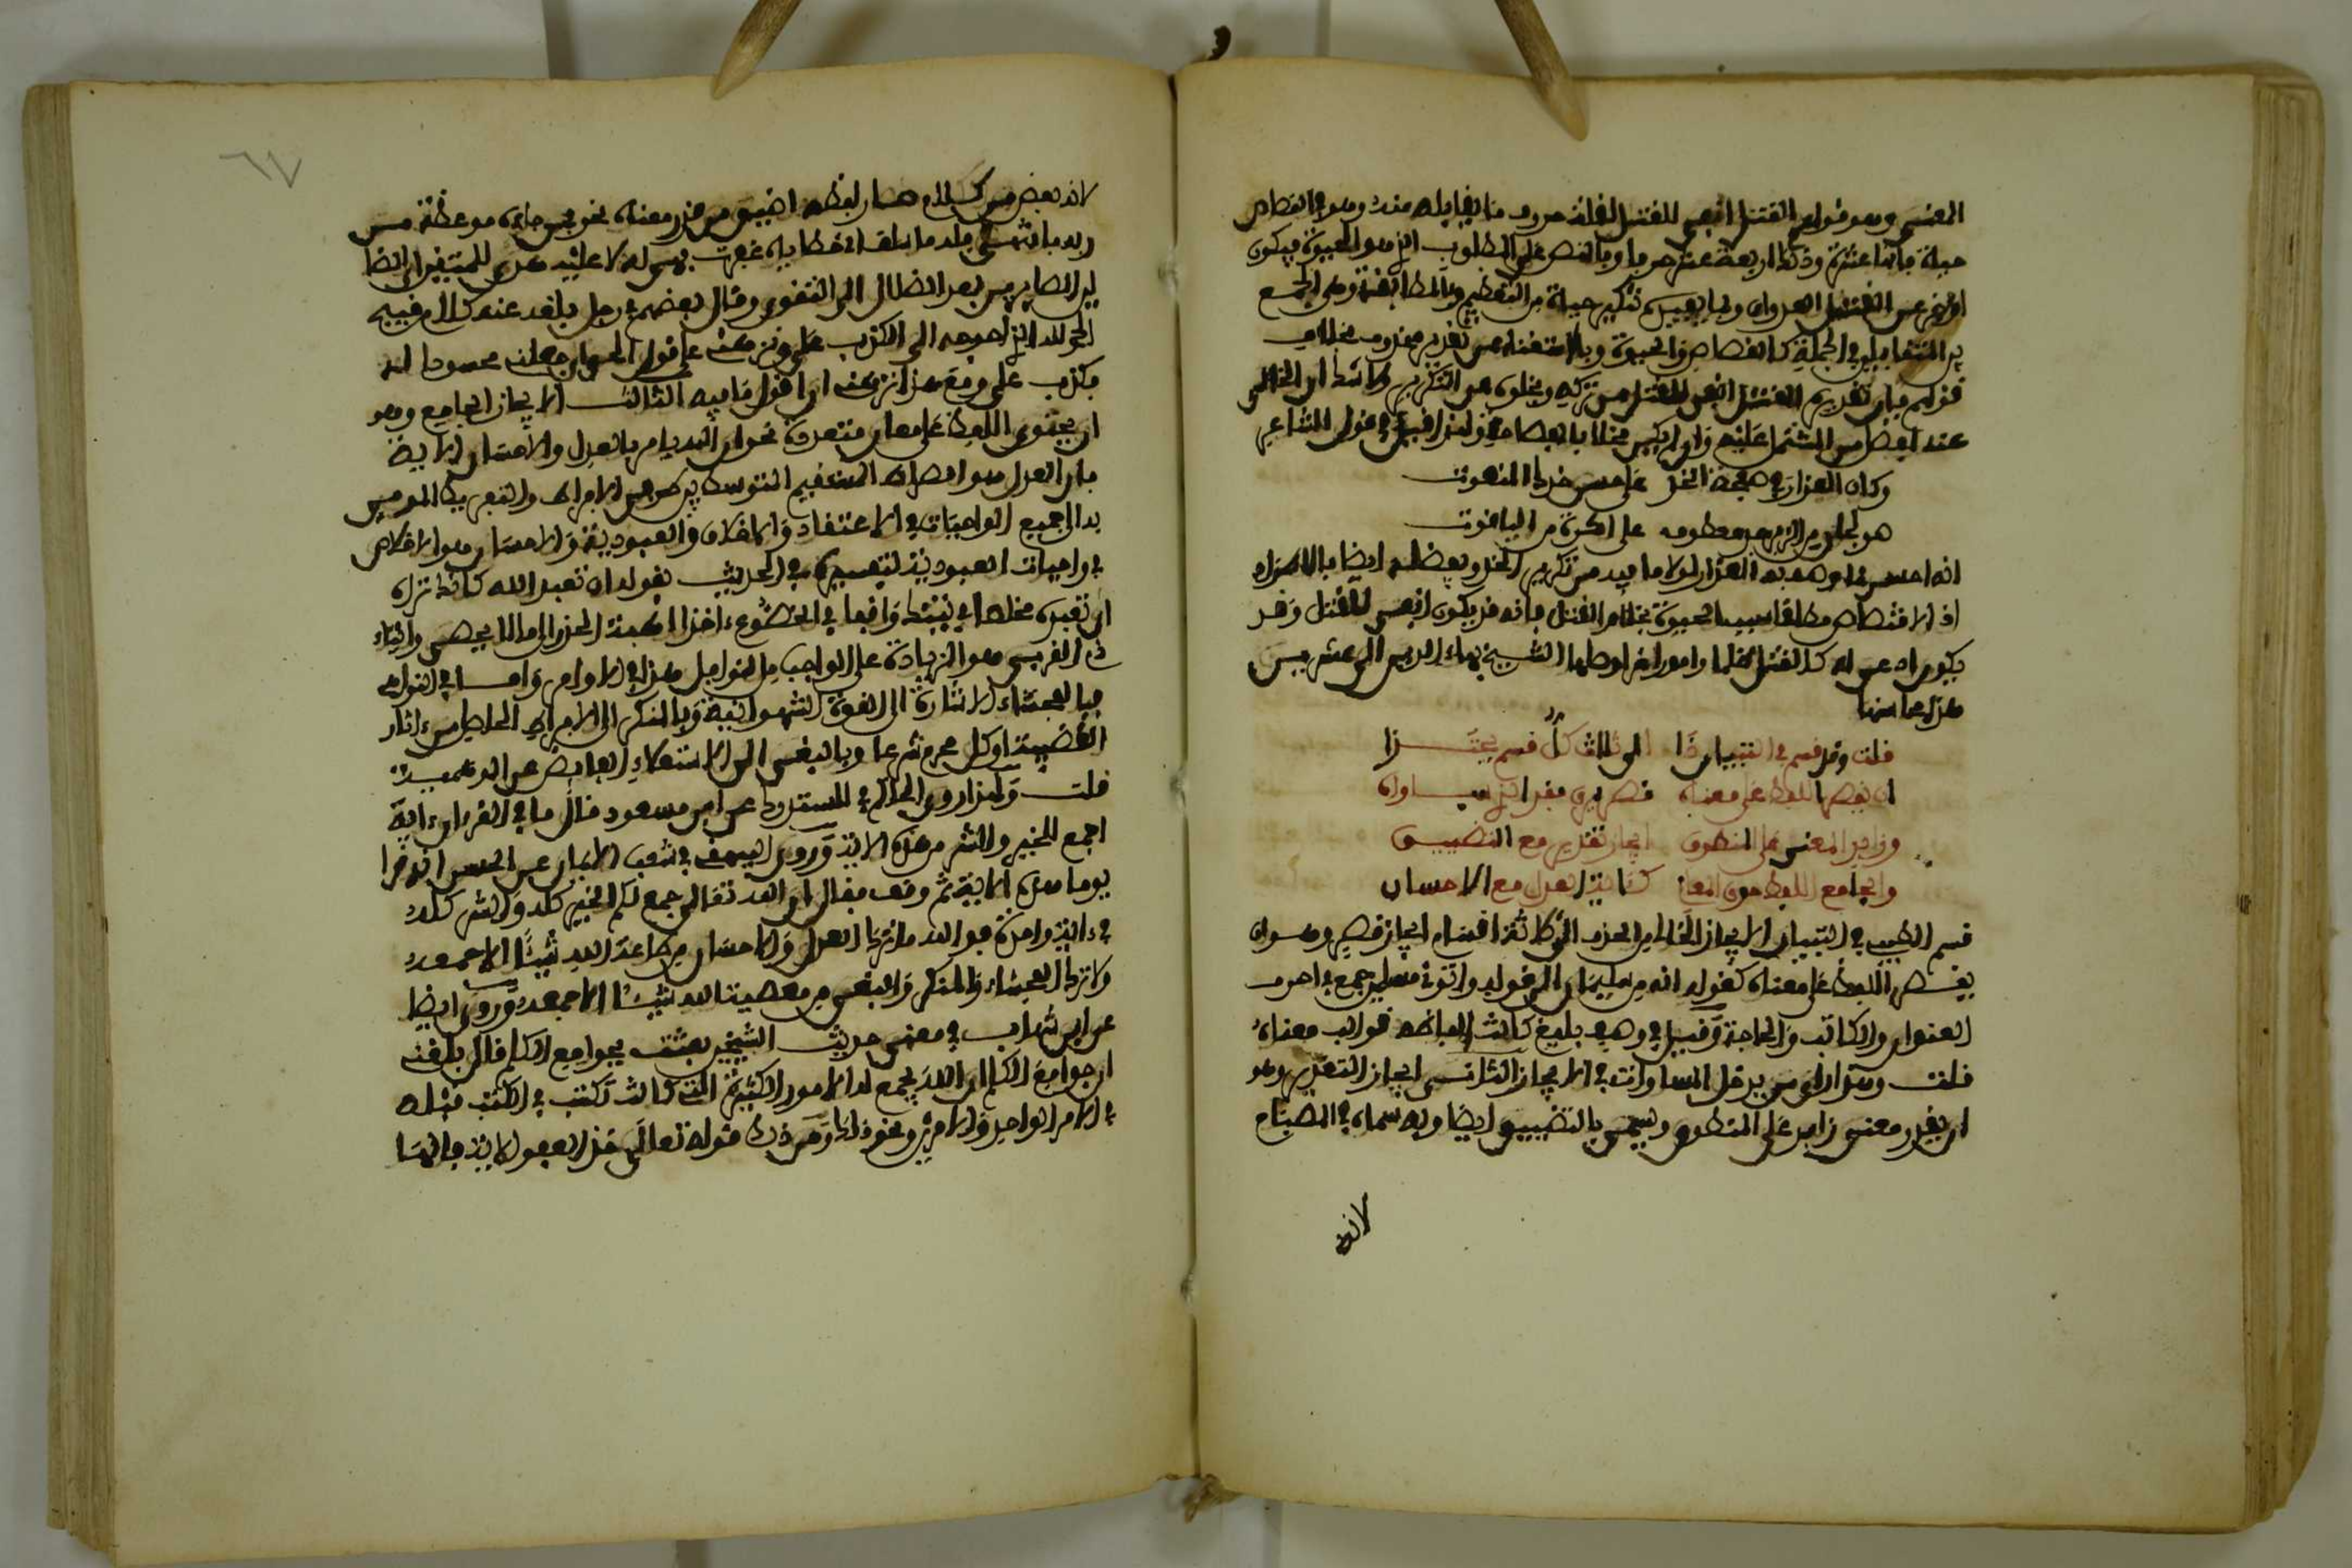 المعنى وهو قولهم القتل انفى للقتل لقلة حروف ما يقابله منه وهو في القصاص
حياة فانها عشرة وذلك اربعة عشر حرفا وبالنص على المطلوب الذي هو الحيوة فيكون
ازجر عن القتل العدوان وبما يفيده تنكير حياة من التعظيم وبالمطابقة وهي الجمع
بين المتقابلين في الجملة كالقصاص والحيوة وبالاستغناء عن تقدير محذوف بخلاف
قولهم فان تقديره القتل انفى للقتل من تركه وبخلوه عن التكرير ولا شك ان الخالي
عنه افضل من المشتمل عليه وان لم يكن مخلا بالفصاحة ولهذا قيل في قول الشاعر
وكان العذار في صفحة الخد على حسن خدك المنعوت
صولجان من الزمرد معطوف على اكرة من الياقوت
انه احسن في وصف العذار لولا ما فيه من تكرير الخد ويفضله ايضا بالاطراد
اذ الاقتصاص مطلقا سبب الحيوة بخلاف القتل فانه قد يكون انفى للقتل وقد
يكون ادعى له كالقتل ظلما وامور اخر اوصلها الشيخ بهاء الدين الى عشرين
هذا محاسنها
قلت وقد قسم في التبيان ذا الى ثلاث كل قسم يحتذا
ان يقصر اللفظ على معناه قصر يرى مفيد الذي ساواه
وزايد المعنى على المنطوق ايجاز تقدير مع التضييق
والجامع اللفظ حوى المعان كاية العدل مع الاحسان
قسم الطيبي في التبيان الايجاز الخالي من الحذف الى ثلاثة اقسام ايجاز قصر وهو ان
يقصر اللفظ على معناه كقوله انه من سليمان الى قوله واتوني مسلمين جمع في احرف
العنوان والكتاب والحاجة وقيل في وصف بليغ كانت الفاظه قوالب معناه
قلت وهو اولى من يدخل المساوات في الايجاز الثاني ايجاز التقدير وهو
ان يقدر معنى زايد على المنطوق ويسمى بالتضييق ايضا وبه سماه في المصباح
لانه
٦٧
لانه بعض من الكلام ما صار لفظه اضيق من قدر معناه نحو فمن جاءه موعظة من
ربه فانتهى فله ما سلف اي خطاياه غفرت فهي له لا عليه هدى للمتقين اي الضا
لين الصايرين بعد الضلال الى التقوى وقال بعضهم في رجل بلغه عنه كلام قبيح
الحمد لله الذي احوجه الى الكذب علي ونزهني على قول الحق جعلني محسودا انه
يكذب علي ومع هذا نزهني ان اقول ما فيه الثالث الايجاز الجامع وهو
ان يحتوي اللفظ على معان متعددة نحو ان الله يامر بالعدل والاحسان الاية
فان العدل هو الصراط المستقيم المتوسط بين طرفي الافراط والتفريط المومى
به الى جميع الواجبات في الاعتقاد والاخلاق والعبودية والاحسان هو الاخلاص
في واجبات العبودية لتفسيره في الحديث بقوله ان تعبد الله كانك تراه
اي تعبده مخلصا في نيتك واقفا في الخضوع ءاخذا اهبة الحذر الى ما لا يحصى وايتاء
ذي القربى هو الزيادة على الواجب من النوافل هذا في الاوامر واما في النواهي
فبالفحشاء الاشارة الى القوة الشهوانية وبالمنكر الى الافراط الحاصل من ءاثار
الغضبية او كل محرم شرعا وبالبغي الى الاستعلاء الفايض عن الوهمية
قلت ولهذا روى الحاكم في المستدرك عن ابن مسعود قال ما في القرءان ءاية
اجمع للخير والشر من هذه الاية وروى البيهقي في شعب الايمان عن الحسن انه قرا
يوما هذه الاية ثم وقف فقال ان الله تعالى جمع لكم الخير كله والشر كله
في ءاية واحدة فوالله ما ترك العدل والاحسان من طاعة الله شيئا الا جمعه
ولا ترك الفحشاء والمنكر والبغي من معصية الله شيئا الا جمعه وروى ايضا
عن ابن شهاب في معنى حديث الشيخين بعثت بجوامع الكلم قال بلغني
ان جوامع الكلم ان الله يجمع له الامور الكثيرة التي كانت تكتب في الكتب قبله
في الامر الواحد والامرين ونحو ذلك ومن ذلك قوله تعالى خذ العفو الاية فانها